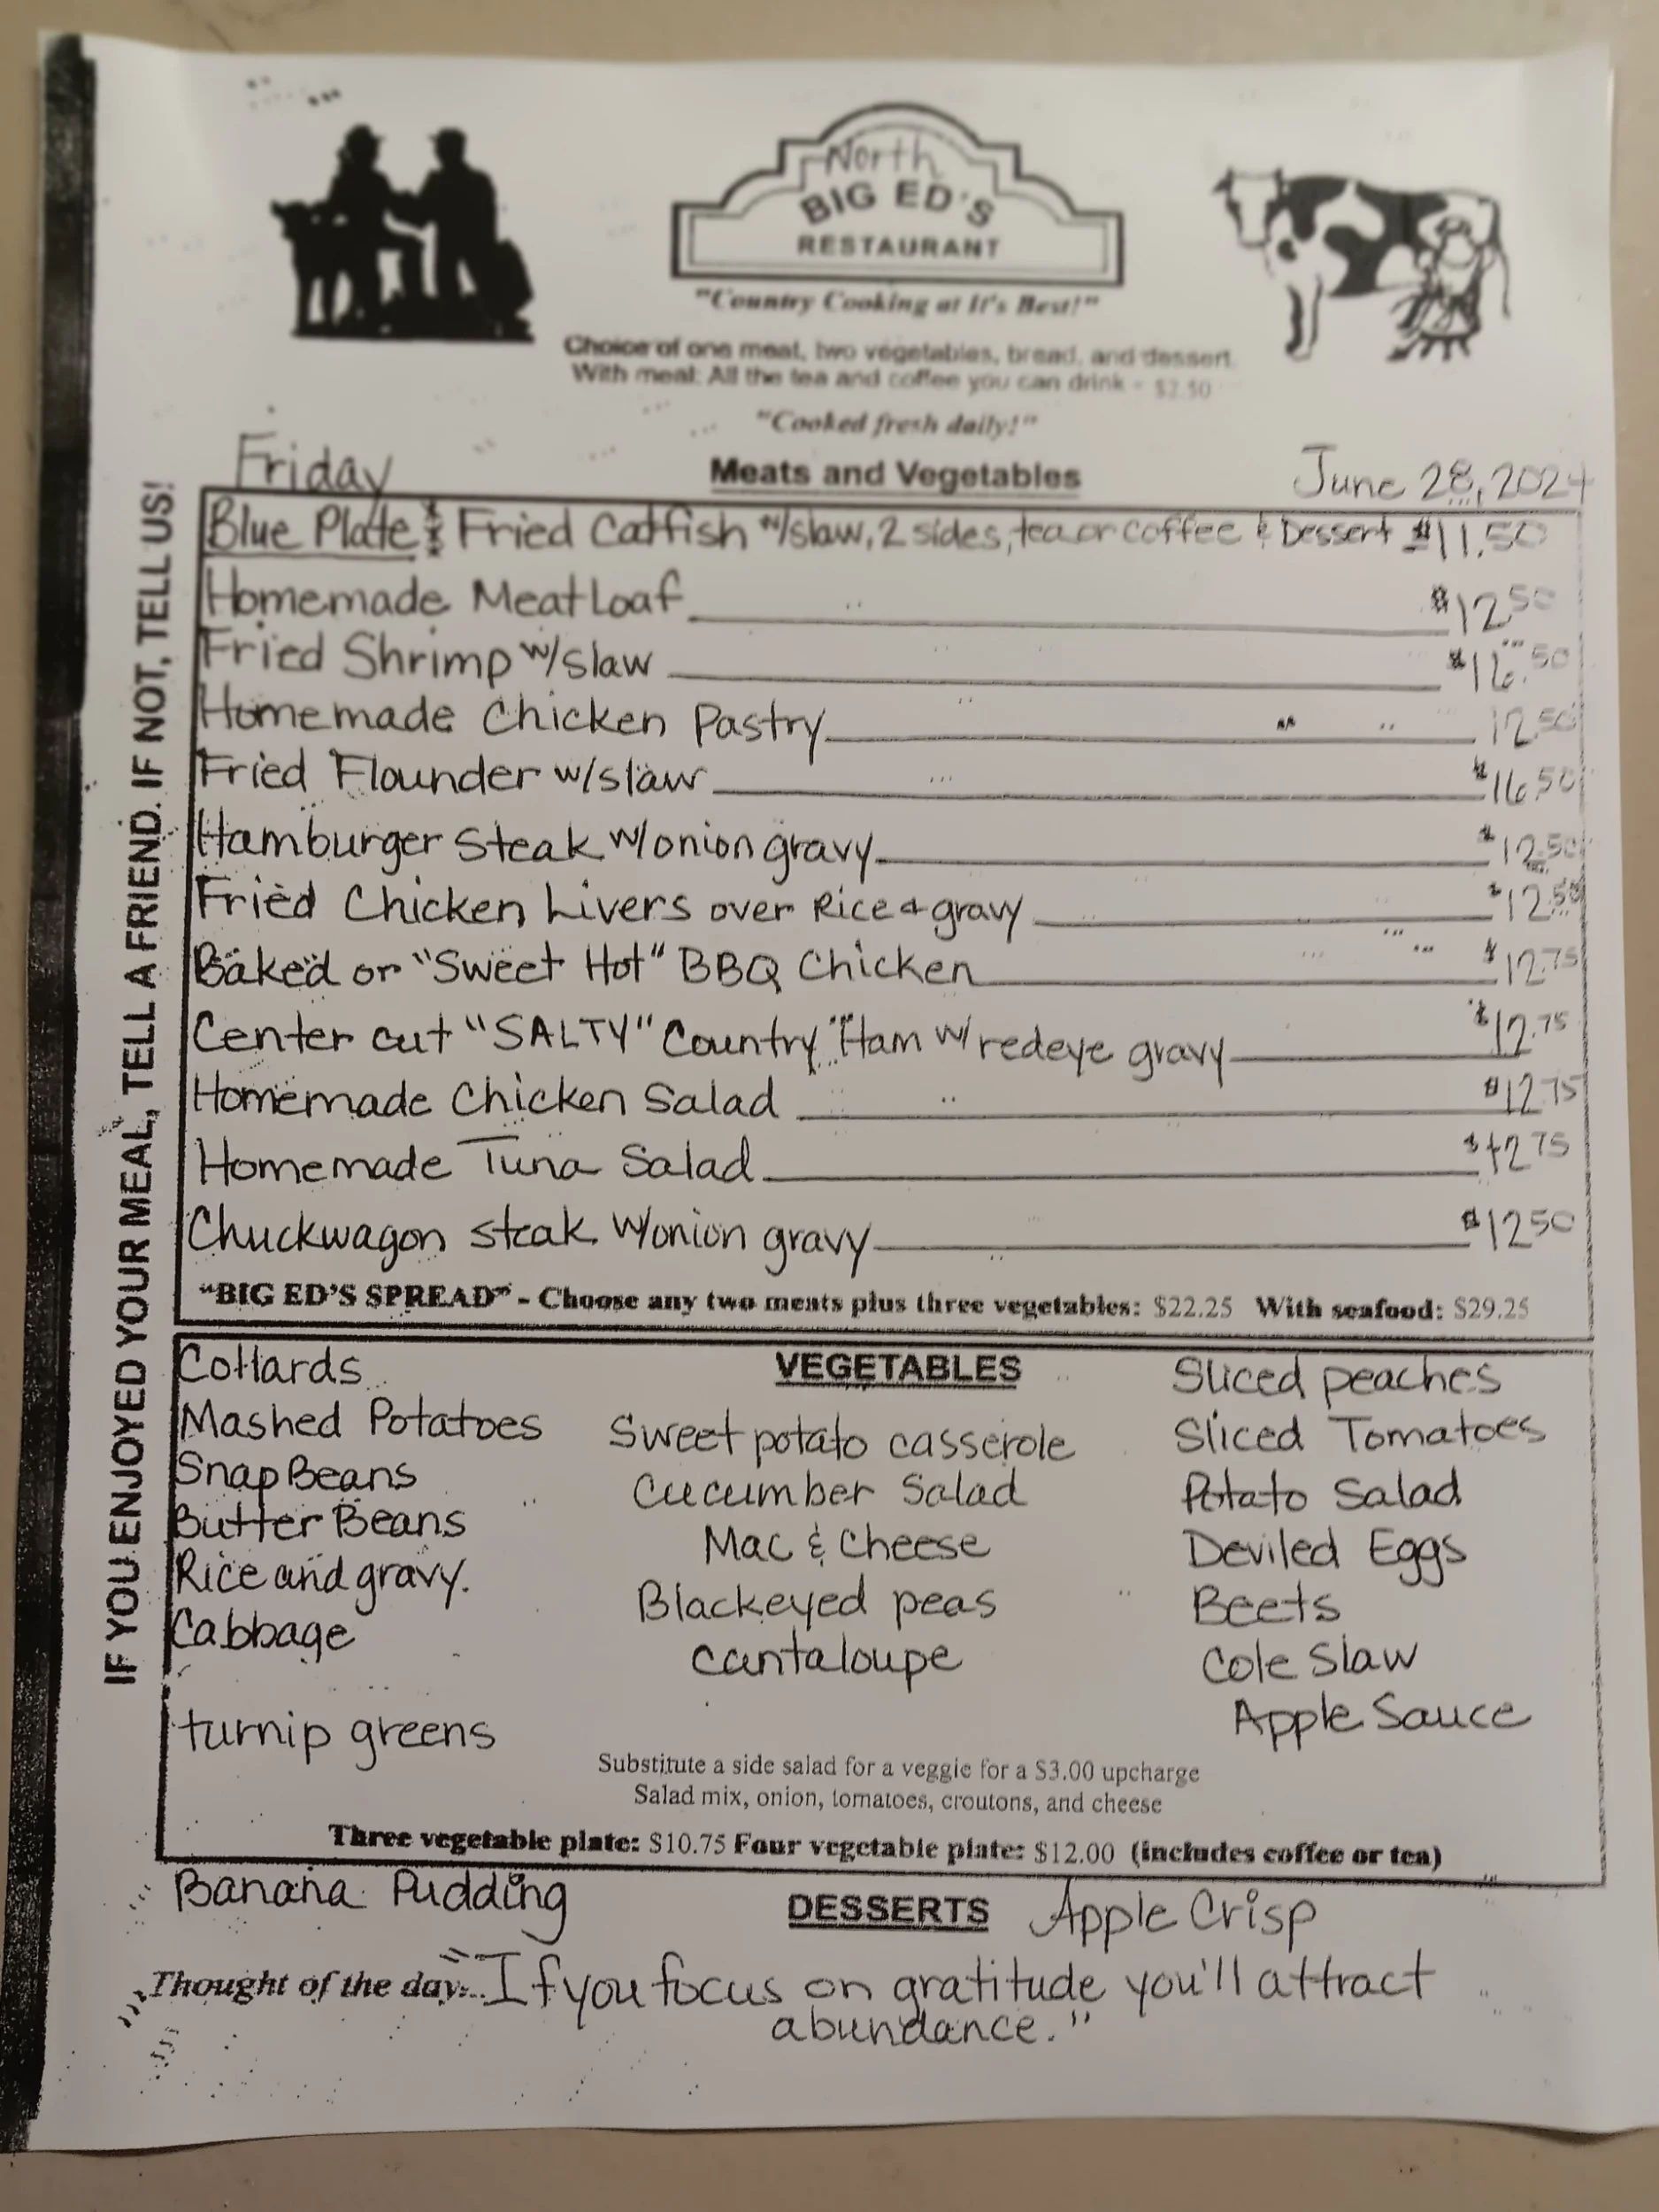 North
BIG ED'S
RESTAURANT
"Country Cooking at It's Best!"
Choice of one meat, two vegetables, bread, and dessert.
With meal: All the tea and coffee you can drink - $2.50
"Cooked fresh daily!"
Friday
Meats and Vegetables
June 28, 2024
Blue Plate: Fried Catfish w/slaw, 2 sides, tea or coffee & Dessert $11.50
Homemade Meat Loaf $12.50
Fried Shrimp w/slaw $16.50
Homemade Chicken Pastry 12.50
Fried Flounder w/slaw $16.50
Hamburger Steak w/onion gravy $12.50
Fried Chicken Livers over Rice & gravy $12.50
Baked or "Sweet Hot" BBQ Chicken $12.75
Center cut "SALTY" Country Ham w/ redeye gravy $12.75
Homemade Chicken Salad $12.75
Homemade Tuna Salad $12.75
Chuckwagon steak w/onion gravy $12.50
"BIG ED'S SPREAD" - Choose any two meats plus three vegetables: $22.25 With seafood: $29.25
IF YOU ENJOYED YOUR MEAL, TELL A FRIEND. IF NOT, TELL US!
VEGETABLES
Collards
Mashed Potatoes
Snap Beans
Butter Beans
Rice and gravy.
Cabbage
turnip greens
Sweet potato casserole
Cucumber Salad
Mac & Cheese
Blackeyed peas
Cantaloupe
Sliced peaches
Sliced Tomatoes
Potato Salad
Deviled Eggs
Beets
Cole Slaw
Apple Sauce
Substitute a side salad for a veggie for a $3.00 upcharge
Salad mix, onion, tomatoes, croutons, and cheese
Three vegetable plate: $10.75 Four vegetable plate: $12.00 (includes coffee or tea)
Banana Pudding
DESSERTS
Apple Crisp
Thought of the day: "If you focus on gratitude you'll attract
abundance."